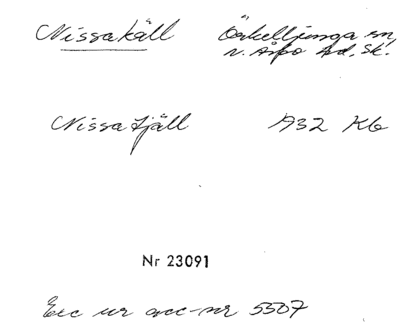 Nissakäll Örkelljunga sn,
N. Åsbo hd. Sk.
Nissatjäll 1932 Kb
Nr 23091
Exc ur acc-nr 5507